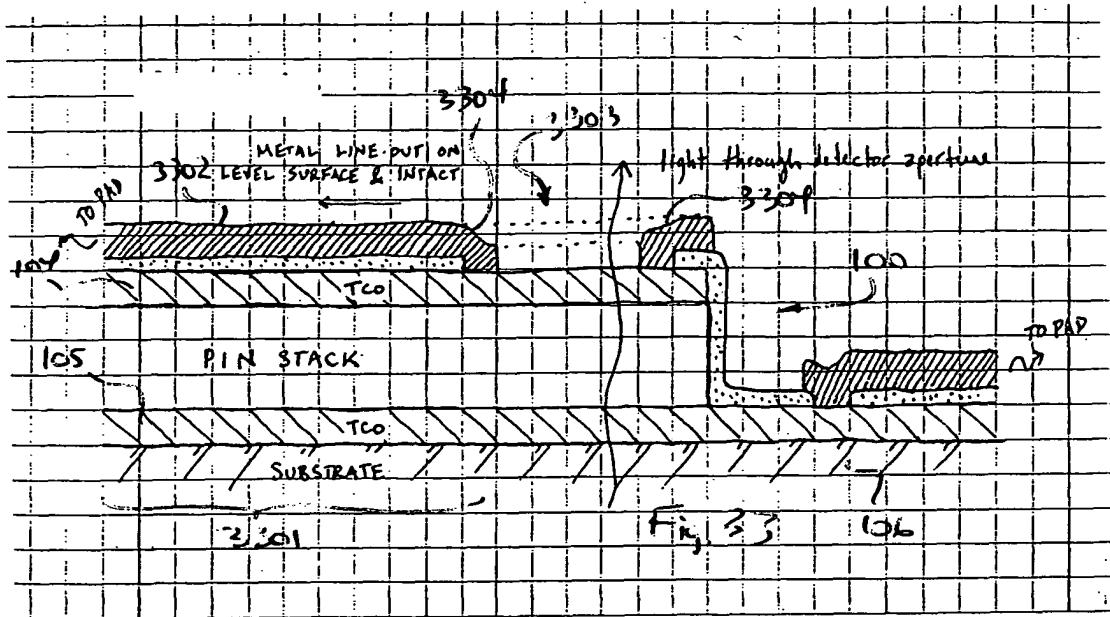 3304
3303
METAL LINE PUT ON
3302 LEVEL SURFACE & INTACT
light through detector aperture
3304
TO PAD
104
100
TCO
TO PAD
105
PIN STACK
TCO
SUBSTRATE
3301
Fig. 33
106